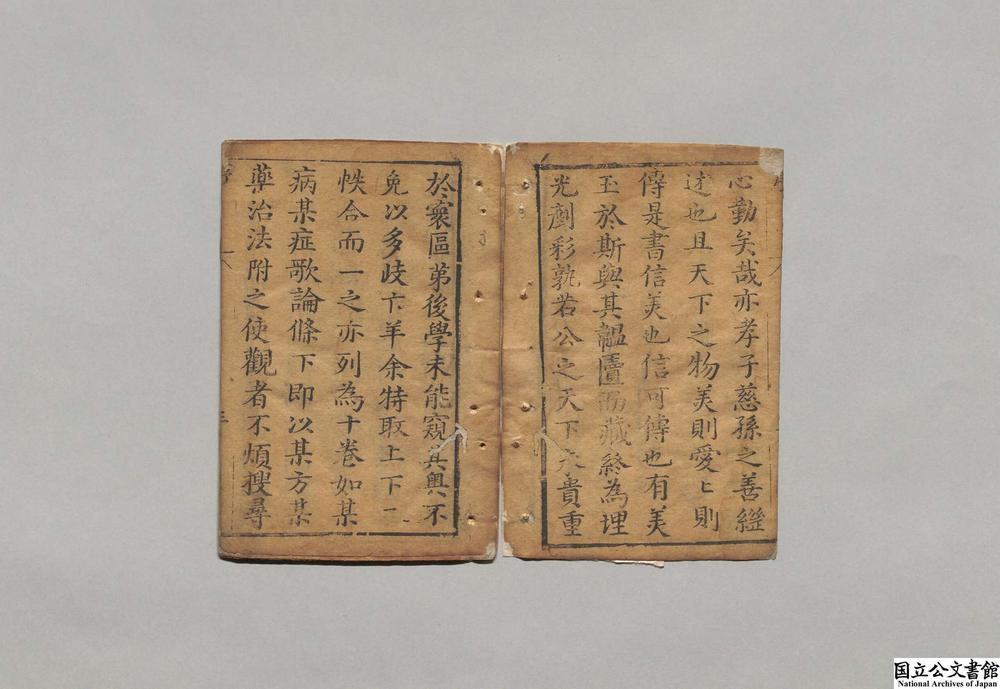 心勤矣哉亦孝子慈孫之善繼
述也且天下之物美則愛〻則
傳是書信美也信可傳也有美
玉於斯與其韞匵而藏終為埋
光剷彩孰若公之天下大貴重
於寰區第後學未能窺其奧不
免以多歧亡羊余特取上下二
帙合而一之亦列為十卷如某
病某症歌論條下即以某方某
藥治法附之使觀者不煩搜尋
国立公文書館
National Archives of Japan